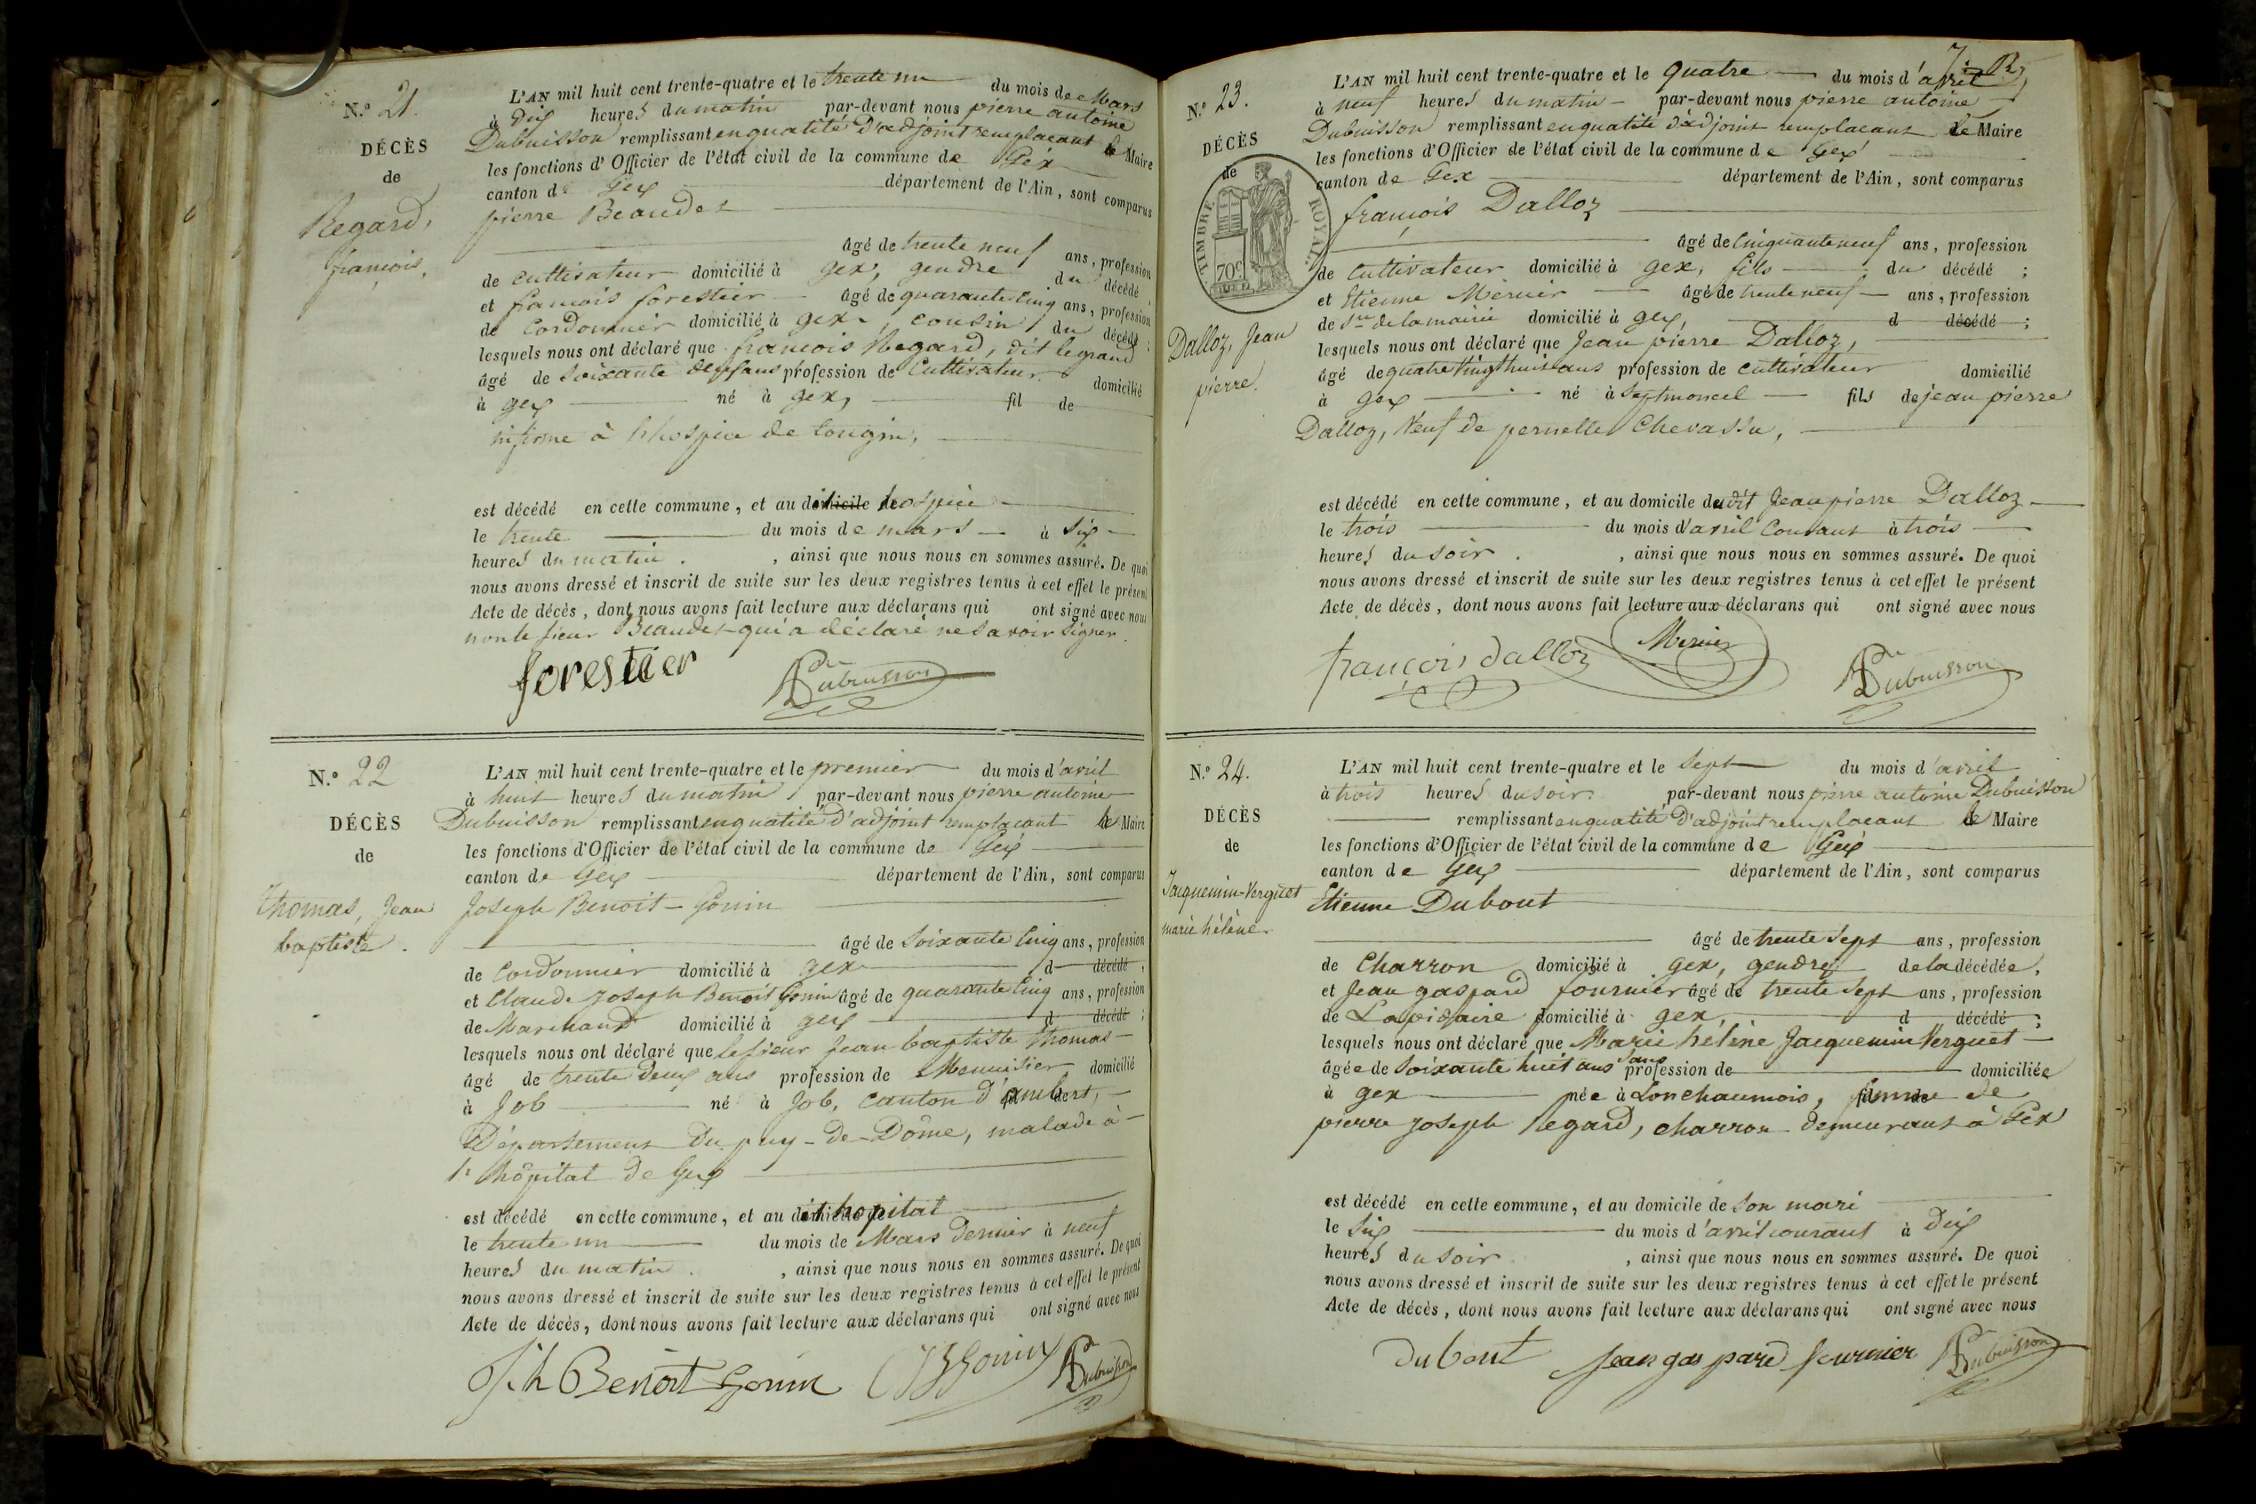 N.° 21.
DÉCÈS
de
Regard,
françois,
L'AN mil huit cent trente-quatre et le trente un du mois de Mars
à dix heures du matin par-devant nous pierre antoine
Dubuisson remplissant en qualité d'adjoint remplacant le Maire
les fonctions d'Officier de l'état civil de la commune de Gex
canton de Gex département de l'Ain, sont comparus
pierre Beaudet
âgé de trente neuf ans, profession
de cultivateur domicilié à gex, gendre du décédé
et francois forestier âgé de quarante cinq ans, profession
de Cordonnier domicilié à gex, cousin du décédé ;
lesquels nous ont déclaré que francois Regard, dit legrand
âgé de soixante ans profession de Cultivateur domicilié
à gex né à gex, fil de
infirme à l'hospice de tougin,
est décédé en cette commune, et au domicile hospice
le trente du mois de mars à six
heures du matin. , ainsi que nous nous en sommes assuré. De quoi
nous avons dressé et inscrit de suite sur les deux registres tenus à cet effet le présent
Acte de décès, dont nous avons fait lecture aux déclarans qui ont signé avec nous
non le sieur Beaudet qui a déclaré ne savoir signer.
forestier Dubuisson
N.° 22
DÉCÈS
de
Thomas, Jean
baptiste.
L'AN mil huit cent trente-quatre et le premier du mois d'avril
à huit heures du matin par-devant nous pierre antoine
Dubuisson remplissant en qualité d'adjoint remplacant le Maire
les fonctions d'Officier de l'état civil de la commune de Gex
canton de Gex département de l'Ain, sont comparus
Joseph Benoit-Gonin
âgé de soixante cinq ans, profession
de Cordonnier domicilié à gex d décédé ;
et Claude Joseph Benoit Gonin âgé de quarante cinq ans, profession
de Marchand domicilié à gex d décédé ;
lesquels nous ont déclaré que le sieur Jean baptiste thomas
âgé de trente deux ans profession de Menuisier domicilié
à Job né à Job, canton d'ambert,
Département du puy-de-Dôme, malade à
l'hôpital de Gex
est décédé en cette commune, et au domicile de l'hopital
le trente un du mois de Mars dernier à neuf
heures du matin. , ainsi que nous nous en sommes assuré. De quoi
nous avons dressé et inscrit de suite sur les deux registres tenus à cet effet le présent
Acte de décès, dont nous avons fait lecture aux déclarans qui ont signé avec nous
Jh Benoit Gonin CJBGonin Dubuisson
7
N.° 23.
DÉCÈS
de
TIMBRE ROYAL.
70c
Dalloz, Jean
pierre.
L'AN mil huit cent trente-quatre et le quatre du mois d'avril
à neuf heures du matin par-devant nous pierre antoine
Dubuisson remplissant en qualité d'adjoint remplacant le Maire
les fonctions d'Officier de l'état civil de la commune de Gex
canton de Gex département de l'Ain, sont comparus
françois Dalloz
âgé de Cinquante neuf ans, profession
de Cultivateur domicilié à gex, fils du décédé ;
et Etienne Mérier âgé de trente neuf ans, profession
de Sre de la mairie domicilié à gex, d décédé ;
lesquels nous ont déclaré que Jean pierre Dalloz,
âgé de quatre vingt huit ans profession de cultivateur domicilié
à gex né à Septmoncel fils de jean pierre
Dalloz, Veuf de pernette Chevassu,
est décédé en cette commune, et au domicile dudit Jean pierre Dalloz
le trois du mois d'avril Courant à trois
heures du soir. , ainsi que nous nous en sommes assuré. De quoi
nous avons dressé et inscrit de suite sur les deux registres tenus à cet effet le présent
Acte de décès, dont nous avons fait lecture aux déclarans qui ont signé avec nous
françois dalloz Merier Dubuisson
N.° 24.
DÉCÈS
de
Jacquemin-Verguet
marie hélène
L'AN mil huit cent trente-quatre et le Sept du mois d'avril
à trois heures du soir par-devant nous pierre antoine Dubuisson
remplissant en qualité d'adjoint remplacant le Maire
les fonctions d'Officier de l'état civil de la commune de Gex
canton de Gex département de l'Ain, sont comparus
Etienne Dubout
âgé de trente sept ans, profession
de Charron domicilié à gex, gendre de la décédée,
et Jean gaspard fournier âgé de trente sept ans, profession
de Lapidaire domicilié à gex, d décédé ;
lesquels nous ont déclaré que Marie hélène Jacquemin Verguet
âgée de soixante huit ans sans profession de domiciliée
à gex née à Lonchaumois, femme de
pierre Joseph Regard, charron demeurant à Gex
est décédé en cette commune, et au domicile de son mari
le six du mois d'avril courant à dix
heures du soir , ainsi que nous nous en sommes assuré. De quoi
nous avons dressé et inscrit de suite sur les deux registres tenus à cet effet le présent
Acte de décès, dont nous avons fait lecture aux déclarans qui ont signé avec nous
dubout Jean gaspard fournier Dubuisson